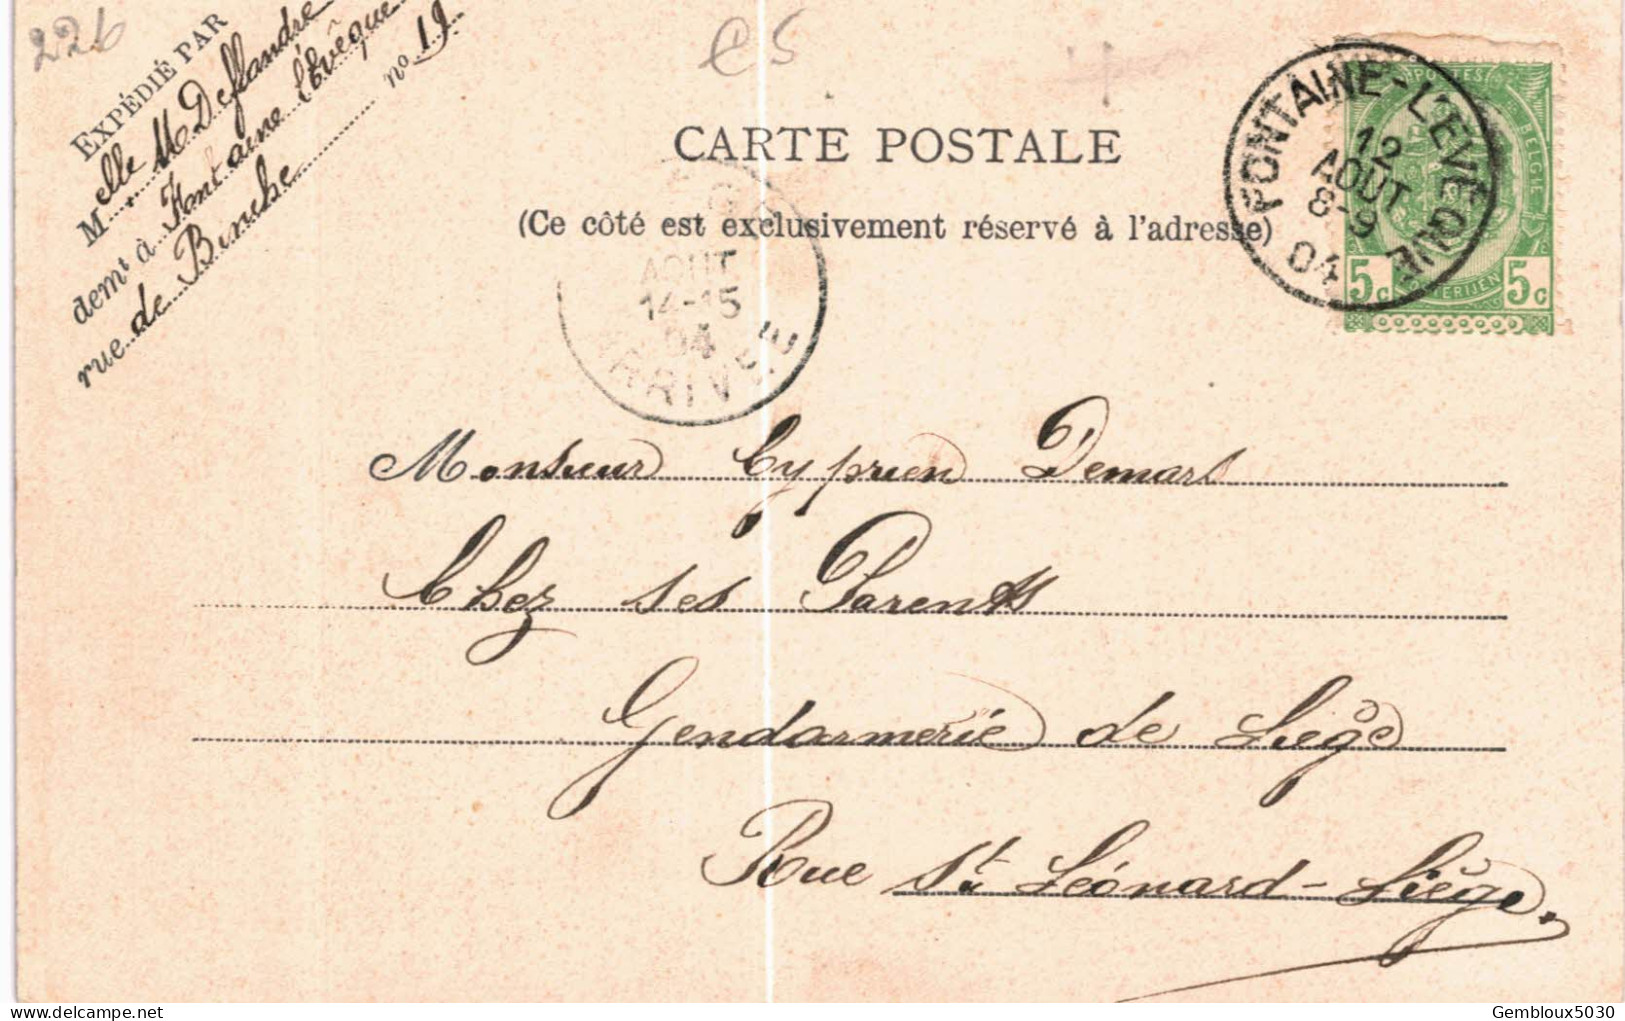 226
EXPÉDIÉ PAR
Melle M. Deflandre
demt à Fontaine l'Evêque
rue de Binche no 19
CARTE POSTALE
(Ce côté est exclusivement réservé à l'adresse)
FONTAINE-L'EVÊQUE
12
AOUT
8-9
04
POSTES
BELGIË
5c 5c
AOUT
14-15
04
ARRIVÉE
Monsieur Cyprien
Chez ses Parents
Gendarmerie de Liège
Rue St Léonard - Liège.
Gembloux5030